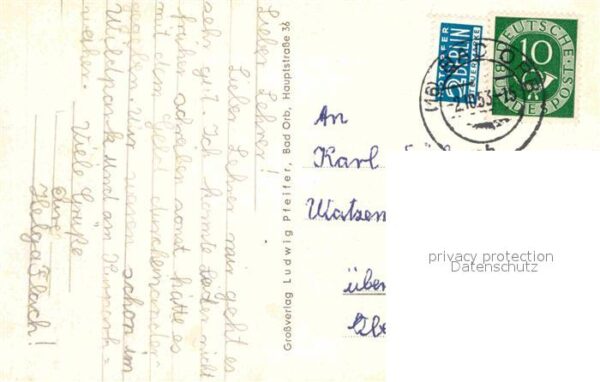 Lieber Lehrer!
Lieber Lehrer mir geht es
sehr gut. Ich konnte leider nicht
früher schreiben sonst hätte es
mit dem Geld durcheinander
gegeben. Wir waren schon im
Wildpark und am
Viele Grüße
Ihre
Helga Flach!
Großverlag Ludwig Pfeiffer, Bad Orb, Hauptstraße 36
NOTOPFER
2 BERLIN
STEUERMARKE
DEUTSCHE
10
BUNDESPOST
(16)
2.10.53-15
An
Karl
Watzen
über
Obe
privacy protection
Datenschutz